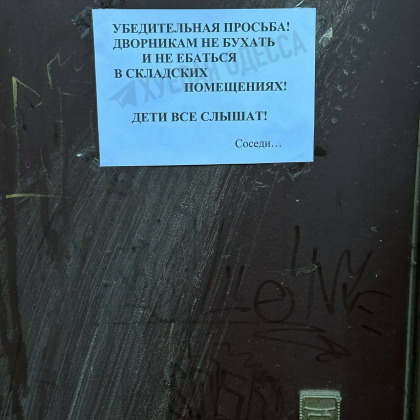 УБЕДИТЕЛЬНАЯ ПРОСЬБА!
ДВОРНИКАМ НЕ БУХАТЬ
И НЕ ЕБАТЬСЯ
В СКЛАДСКИХ
ПОМЕЩЕНИЯХ!
ДЕТИ ВСЕ СЛЫШАТ!
Соседи...